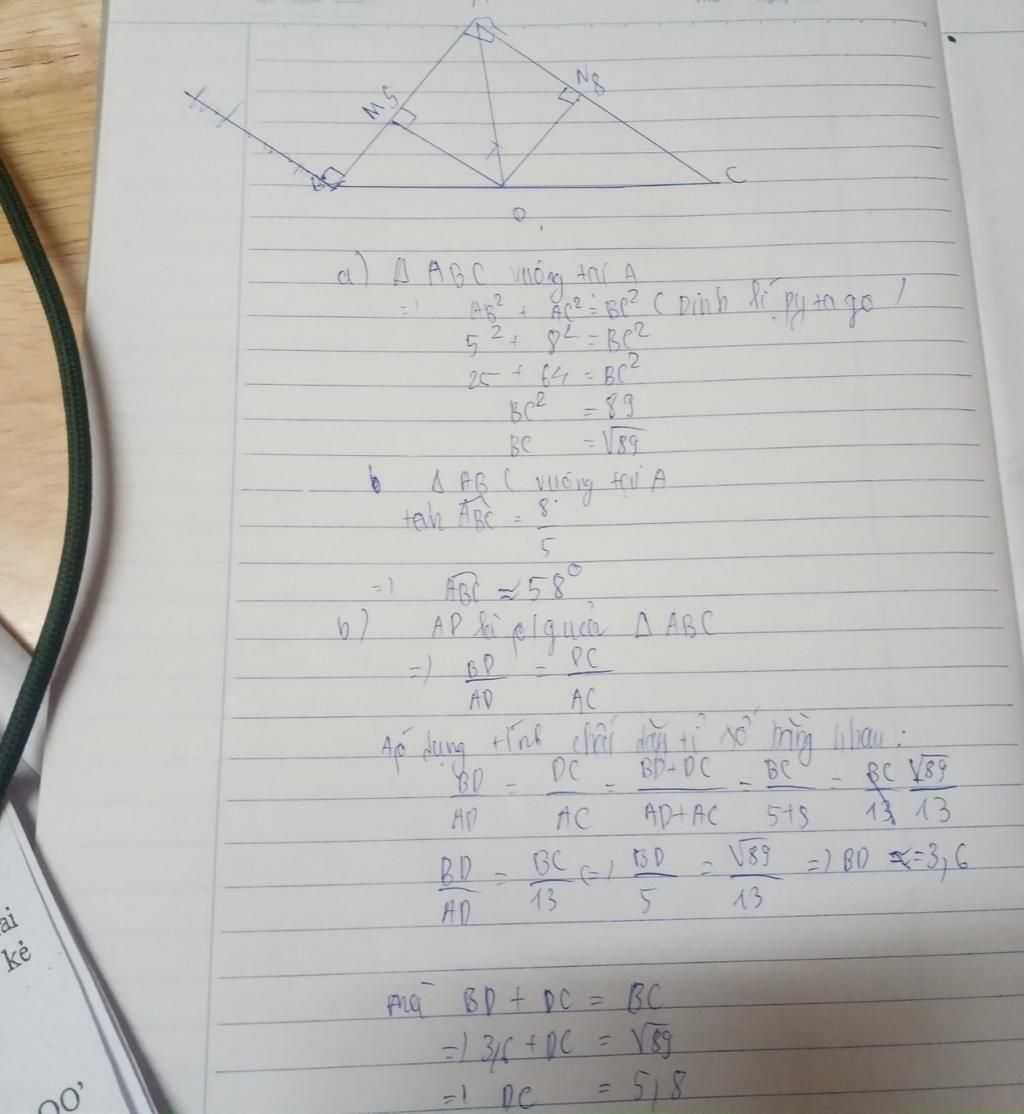 M 5
N 8
C
D
a) Δ ABC vuông tại A
=) AB² + AC² = BC² ( Định lí pytago )
5² + 8² = BC²
25 + 64 = BC²
BC² = 89
BC = √89
b Δ ABC vuông tại A
tan ABC = 8/5
=) ABC ≈ 58°
b) AD là p/g của Δ ABC
=) BD/AD = DC/AC
Áp dụng tính chất dãy tỉ số bằng nhau :
BD/AD = DC/AC = BD+DC/AD+AC = BC/5+8 = BC/13 √89/13
BD/AD = BC/13 (=) BD/5 = √89/13 =) BD ≈ 3,6
mà BD + DC = BC
=) 3,6 + DC = √89
=) DC = 5,8
ai
kẻ
00'